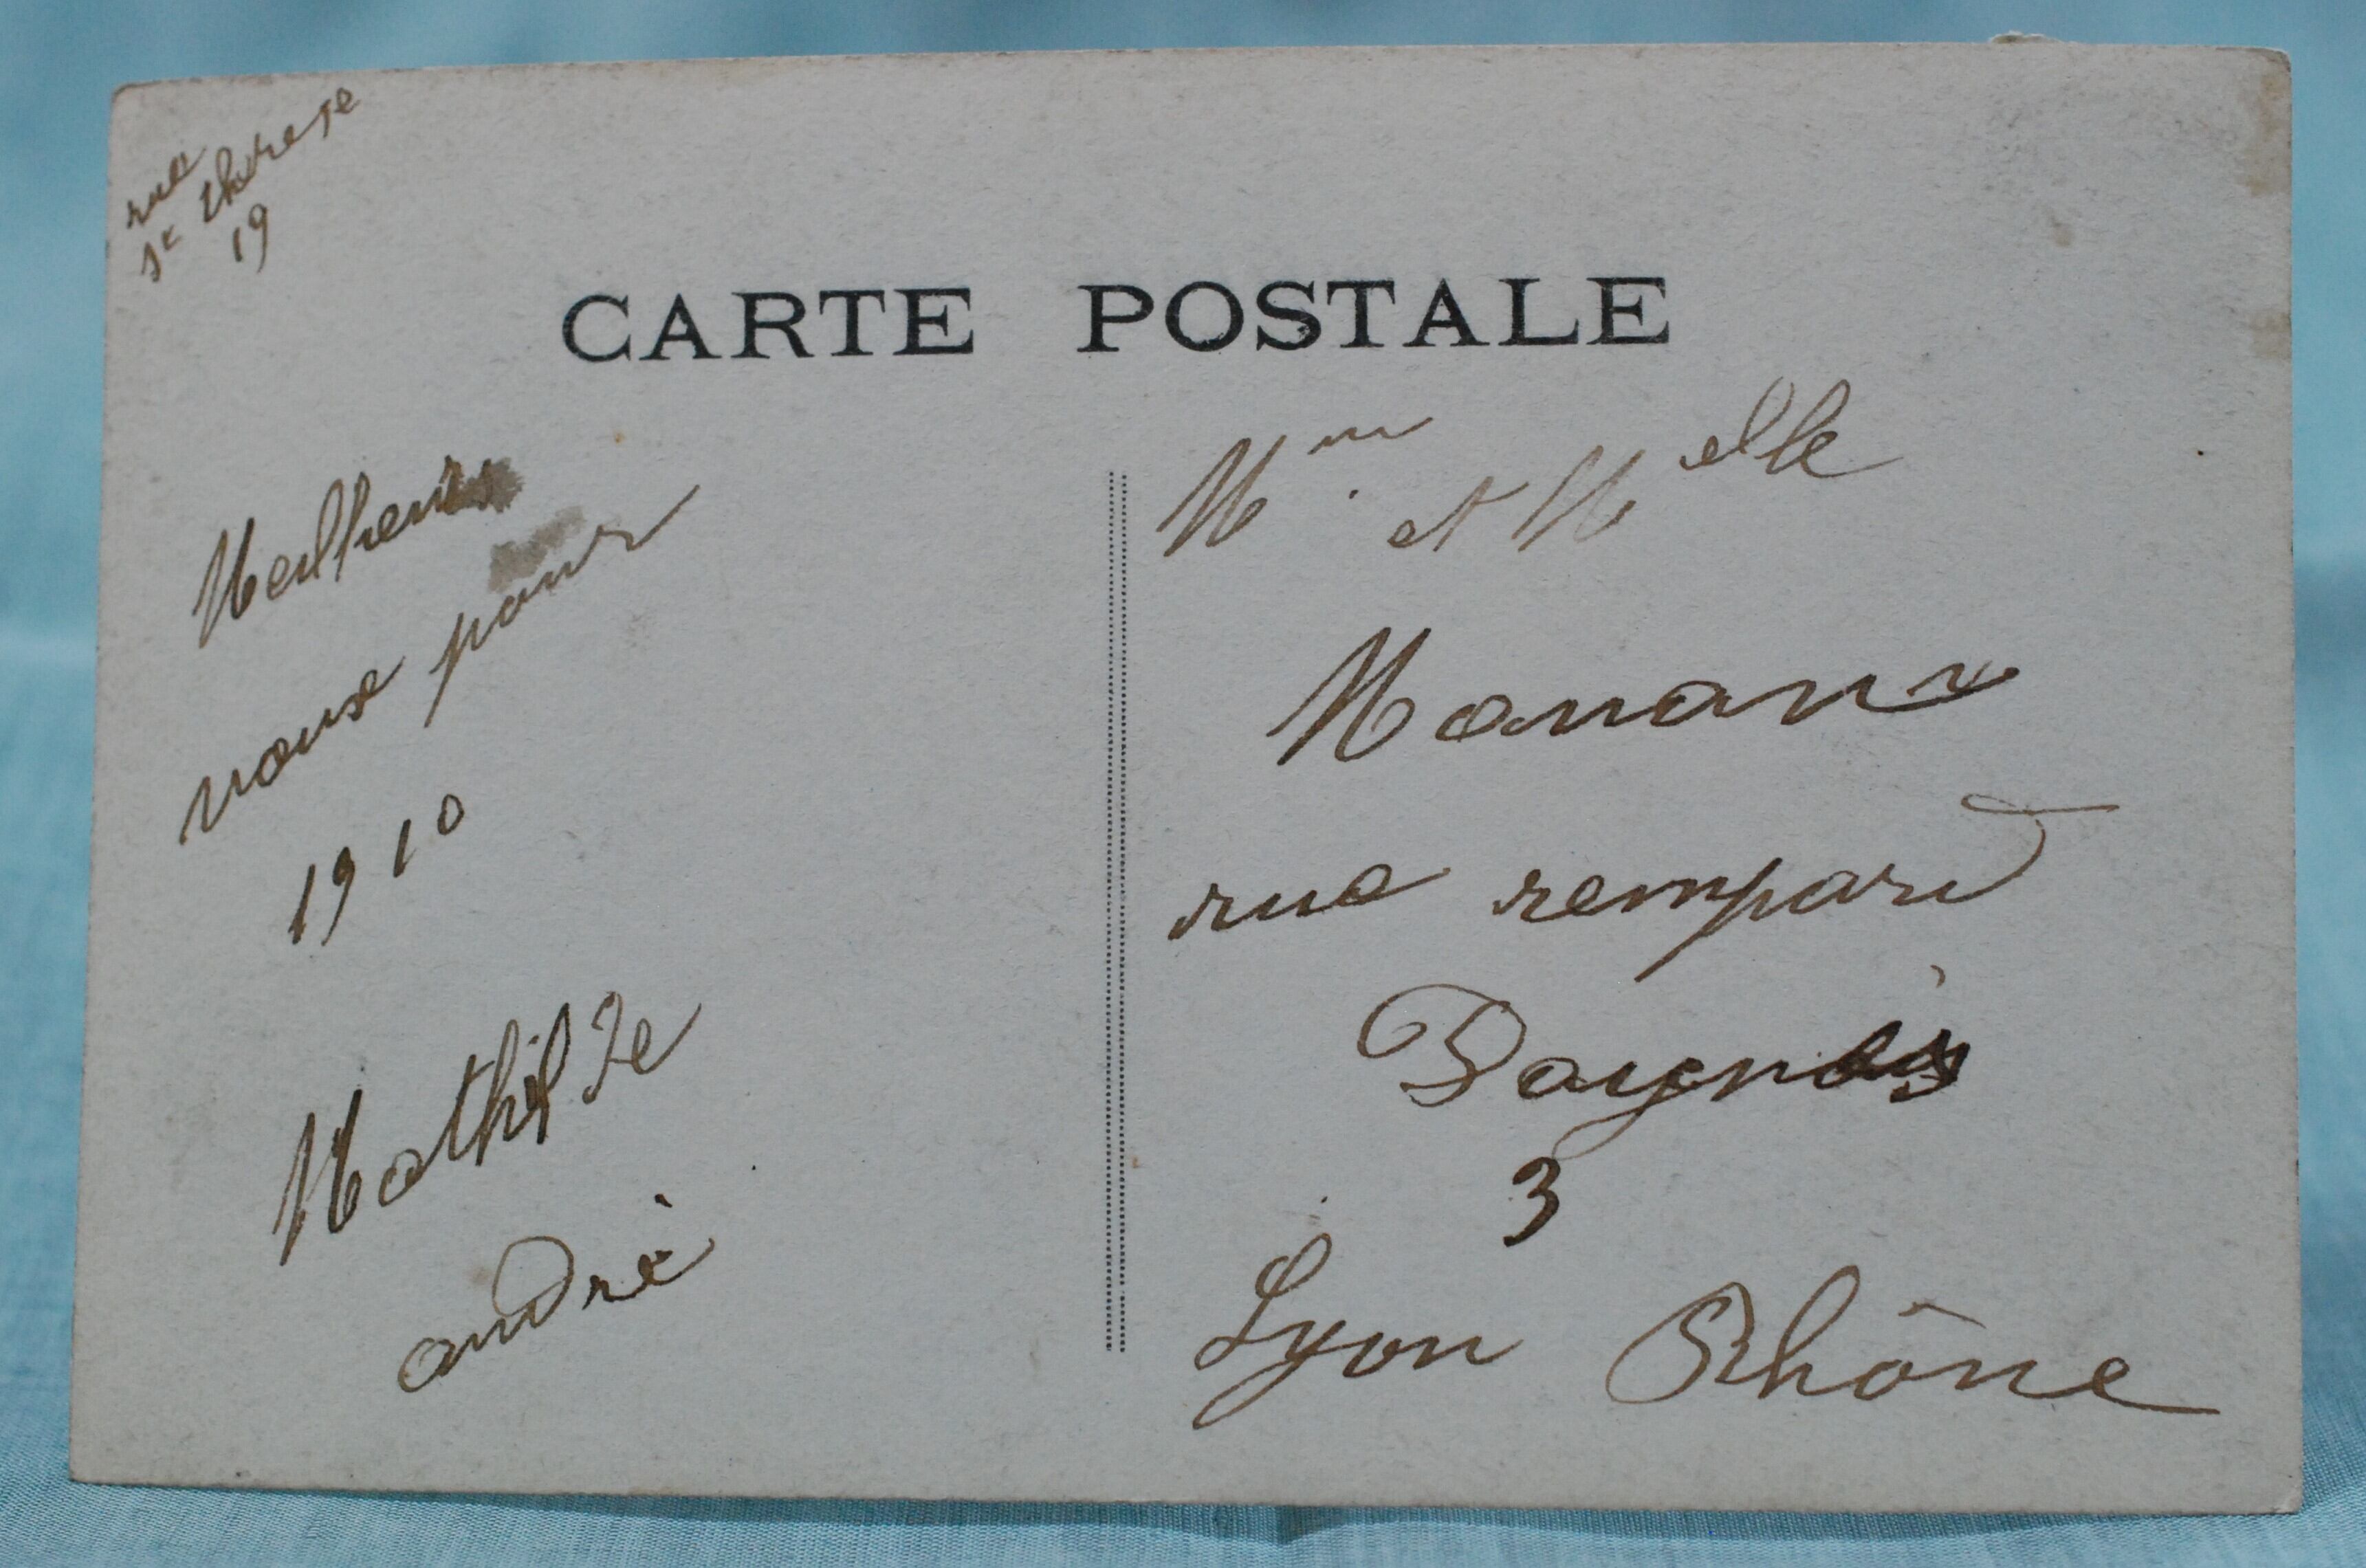 rue
Ste therese
19
CARTE POSTALE
Meilleurs
voeux pour
1910
Mathilde
andré
Mme et Melle
rue rempart
Daignais
3
Lyon Rhône